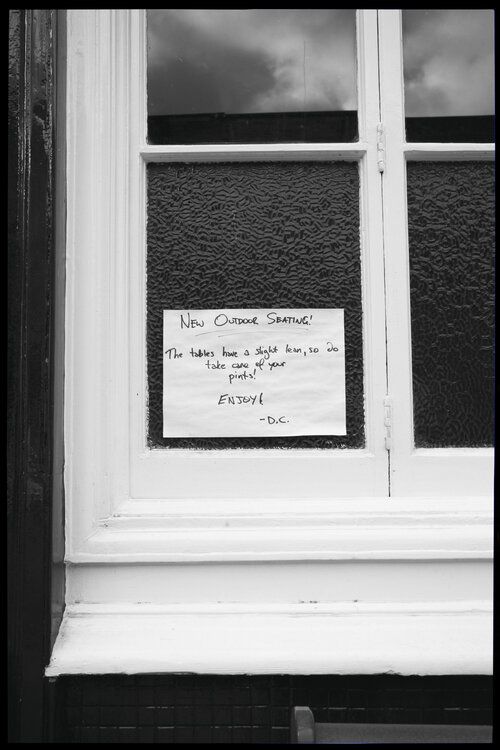 NEW OUTDOOR SEATING!
The tables have a slight lean, so do
take care of your
pints!
ENJOY!
-D.C.